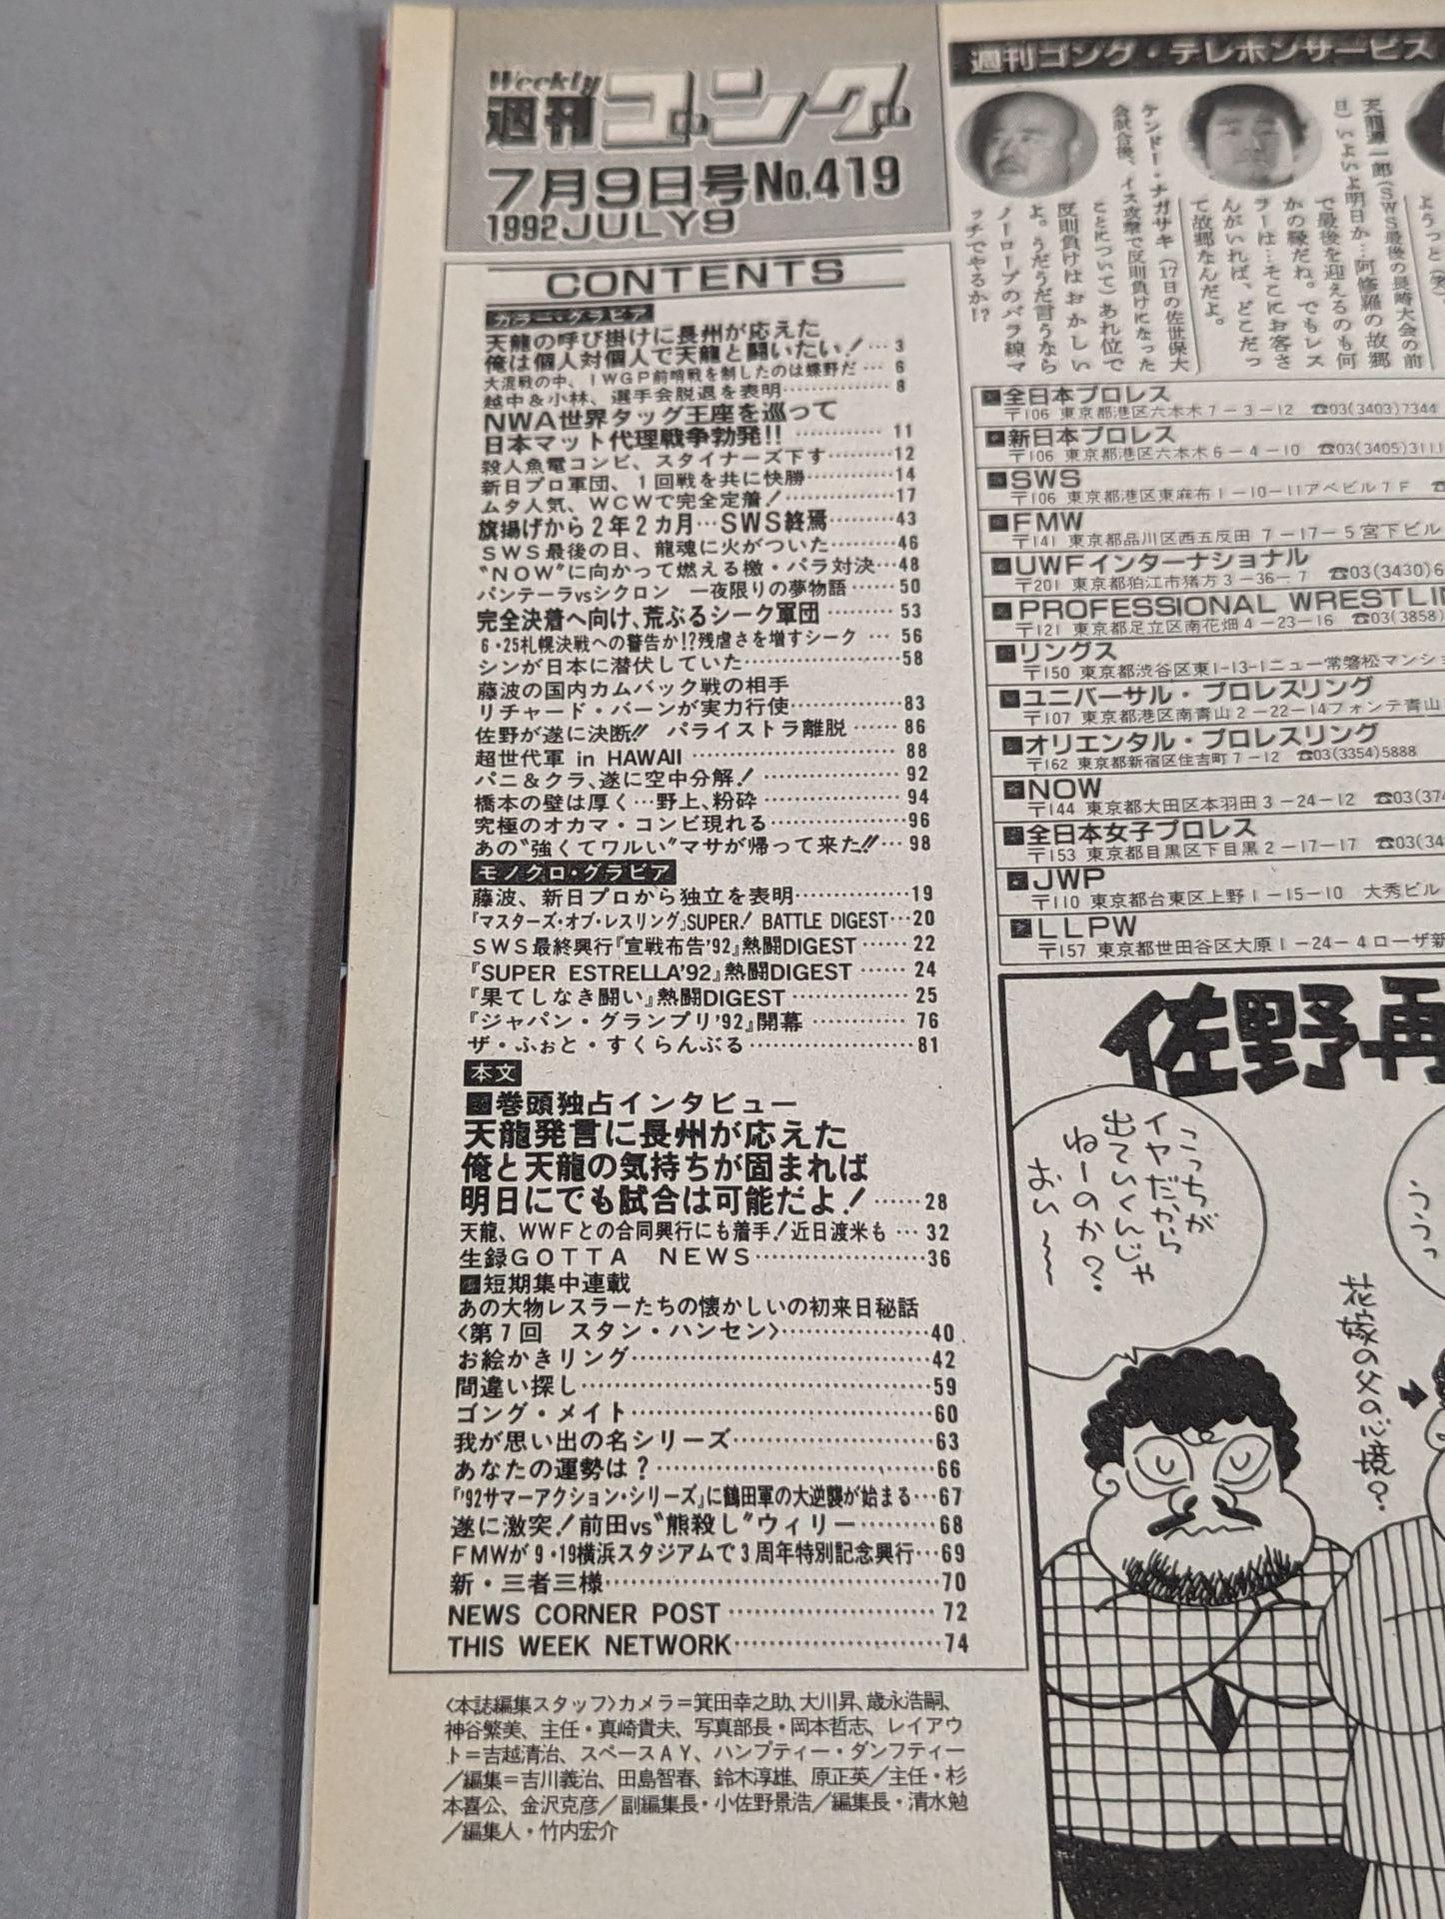 Weekly
週刊ゴング
7月9日号No.419
1992 JULY 9
CONTENTS
カラー・グラビア
天龍の呼び掛けに長州が応えた
俺は個人対個人で天龍と闘いたい!…3
大混戦の中、IWGP前哨戦を制したのは蝶野だ…6
越中&小林、選手会脱退を表明……8
NWA世界タッグ王座を巡って
日本マット代理戦争勃発!!……11
殺人魚雷コンビ、スタイナーズ下す……12
新日プロ軍団、1回戦を共に快勝……14
ムタ人気、WCWで完全定着!……17
旗揚げから2年2カ月…SWS終焉……43
SWS最後の日、龍魂に火がついた……46
“NOW”に向かって燃える檄・バラ対決…48
パンテーラvsシクロン 一夜限りの夢物語……50
完全決着へ向け、荒ぶるシーク軍団……53
6・25札幌決戦への警告か!?残虐さを増すシーク…56
シンが日本に潜伏していた……58
藤波の国内カムバック戦の相手
リチャード・バーンが実力行使……83
佐野が遂に決断!! パライストラ離脱……86
超世代軍 in HAWAII……88
バニ&クラ、遂に空中分解!……92
橋本の壁は厚く…野上、粉砕……94
究極のオカマ・コンビ現れる……96
あの“強くてワルい”マサが帰って来た!!…98
モノクロ・グラビア
藤波、新日プロから独立を表明……19
『マスターズ・オブ・レスリング』SUPER! BATTLE DIGEST…20
SWS最終興行『宣戦布告'92』熱闘DIGEST……22
『SUPER ESTRELLA'92』熱闘DIGEST……24
『果てしなき闘い』熱闘DIGEST……25
『ジャパン・グランプリ'92』開幕……76
ザ・ふぉと・すくらんぶる……81
本文
巻頭独占インタビュー
天龍発言に長州が応えた
俺と天龍の気持ちが固まれば
明日にでも試合は可能だよ!……28
天龍、WWFとの合同興行にも着手!近日渡米も…32
生録GOTTA NEWS……36
短期集中連載
あの大物レスラーたちの懐かしいの初来日秘話
〈第7回 スタン・ハンセン〉……40
お絵かきリング……42
間違い探し……59
ゴング・メイト……60
我が思い出の名シリーズ……63
あなたの運勢は?……66
『'92サマーアクション・シリーズ』に鶴田軍の大逆襲が始まる…67
遂に激突!前田vs“熊殺し”ウィリー……68
FMWが9・19横浜スタジアムで3周年特別記念興行…69
新・三者三様……70
NEWS CORNER POST……72
THIS WEEK NETWORK……74
〈本誌編集スタッフ〉カメラ=箕田幸之助、大川昇、歳永浩嗣、
神谷繁美、主任・真崎貴夫、写真部長・岡本哲志、レイアウ
ト=吉越清治、スペースAY、ハンプティー・ダンプティー
/編集=吉川義治、田島智春、鈴木淳雄、原正英/主任・杉
本喜公、金沢克彦/副編集長・小佐野景浩/編集長・清水勉
/編集人・竹内宏介
週刊ゴング・テレホンサービス
ケンドー・ナガサキ(17日の佐世保大
会試合後、イス攻撃で反則負けになった
ことについて)あれ位で
反則負けはおかしい
よ。うだうだ言うなら
ノーロープのバラ線マ
ッチでやるか!?
天龍源一郎(SWS最後の長崎大会の前
日)いよいよ明日か…阿修羅の故郷
で最後を迎えるのも何
かの縁だね。でもレス
ラーは…そこにお客さ
んがいれば、どこだっ
て故郷なんだよ。
ようっと(笑)
全日本プロレス
〒106 東京都港区六本木7-3-12 ☎03(3403)7344
新日本プロレス
〒106 東京都港区六本木6-4-10 ☎03(3405)3111
SWS
〒106 東京都港区東麻布1-10-11アベビル7F ☎
FMW
〒141 東京都品川区西五反田7-17-5宮下ビル
UWFインターナショナル
〒201 東京都狛江市猪方3-36-7 ☎03(3430)6
PROFESSIONAL WRESTLIN
〒121 東京都足立区南花畑4-23-16 ☎03(3858)
リングス
〒150 東京都渋谷区東1-13-1ニュー常磐松マンショ
ユニバーサル・プロレスリング
〒107 東京都港区南青山2-22-14フォンテ青山
オリエンタル・プロレスリング
〒162 東京都新宿区住吉町7-12 ☎03(3354)5888
NOW
〒144 東京都大田区本羽田3-24-12 ☎03(374
全日本女子プロレス
〒153 東京都目黒区下目黒2-17-17 ☎03(34
JWP
〒110 東京都台東区上野1-15-10 大秀ビル
LLPW
〒157 東京都世田谷区大原1-24-4ローザ新
佐野再
こっちが
イヤだから
出ていくんじゃ
ねーのか?
おい〜〜
ううっ
花嫁の父の心境?